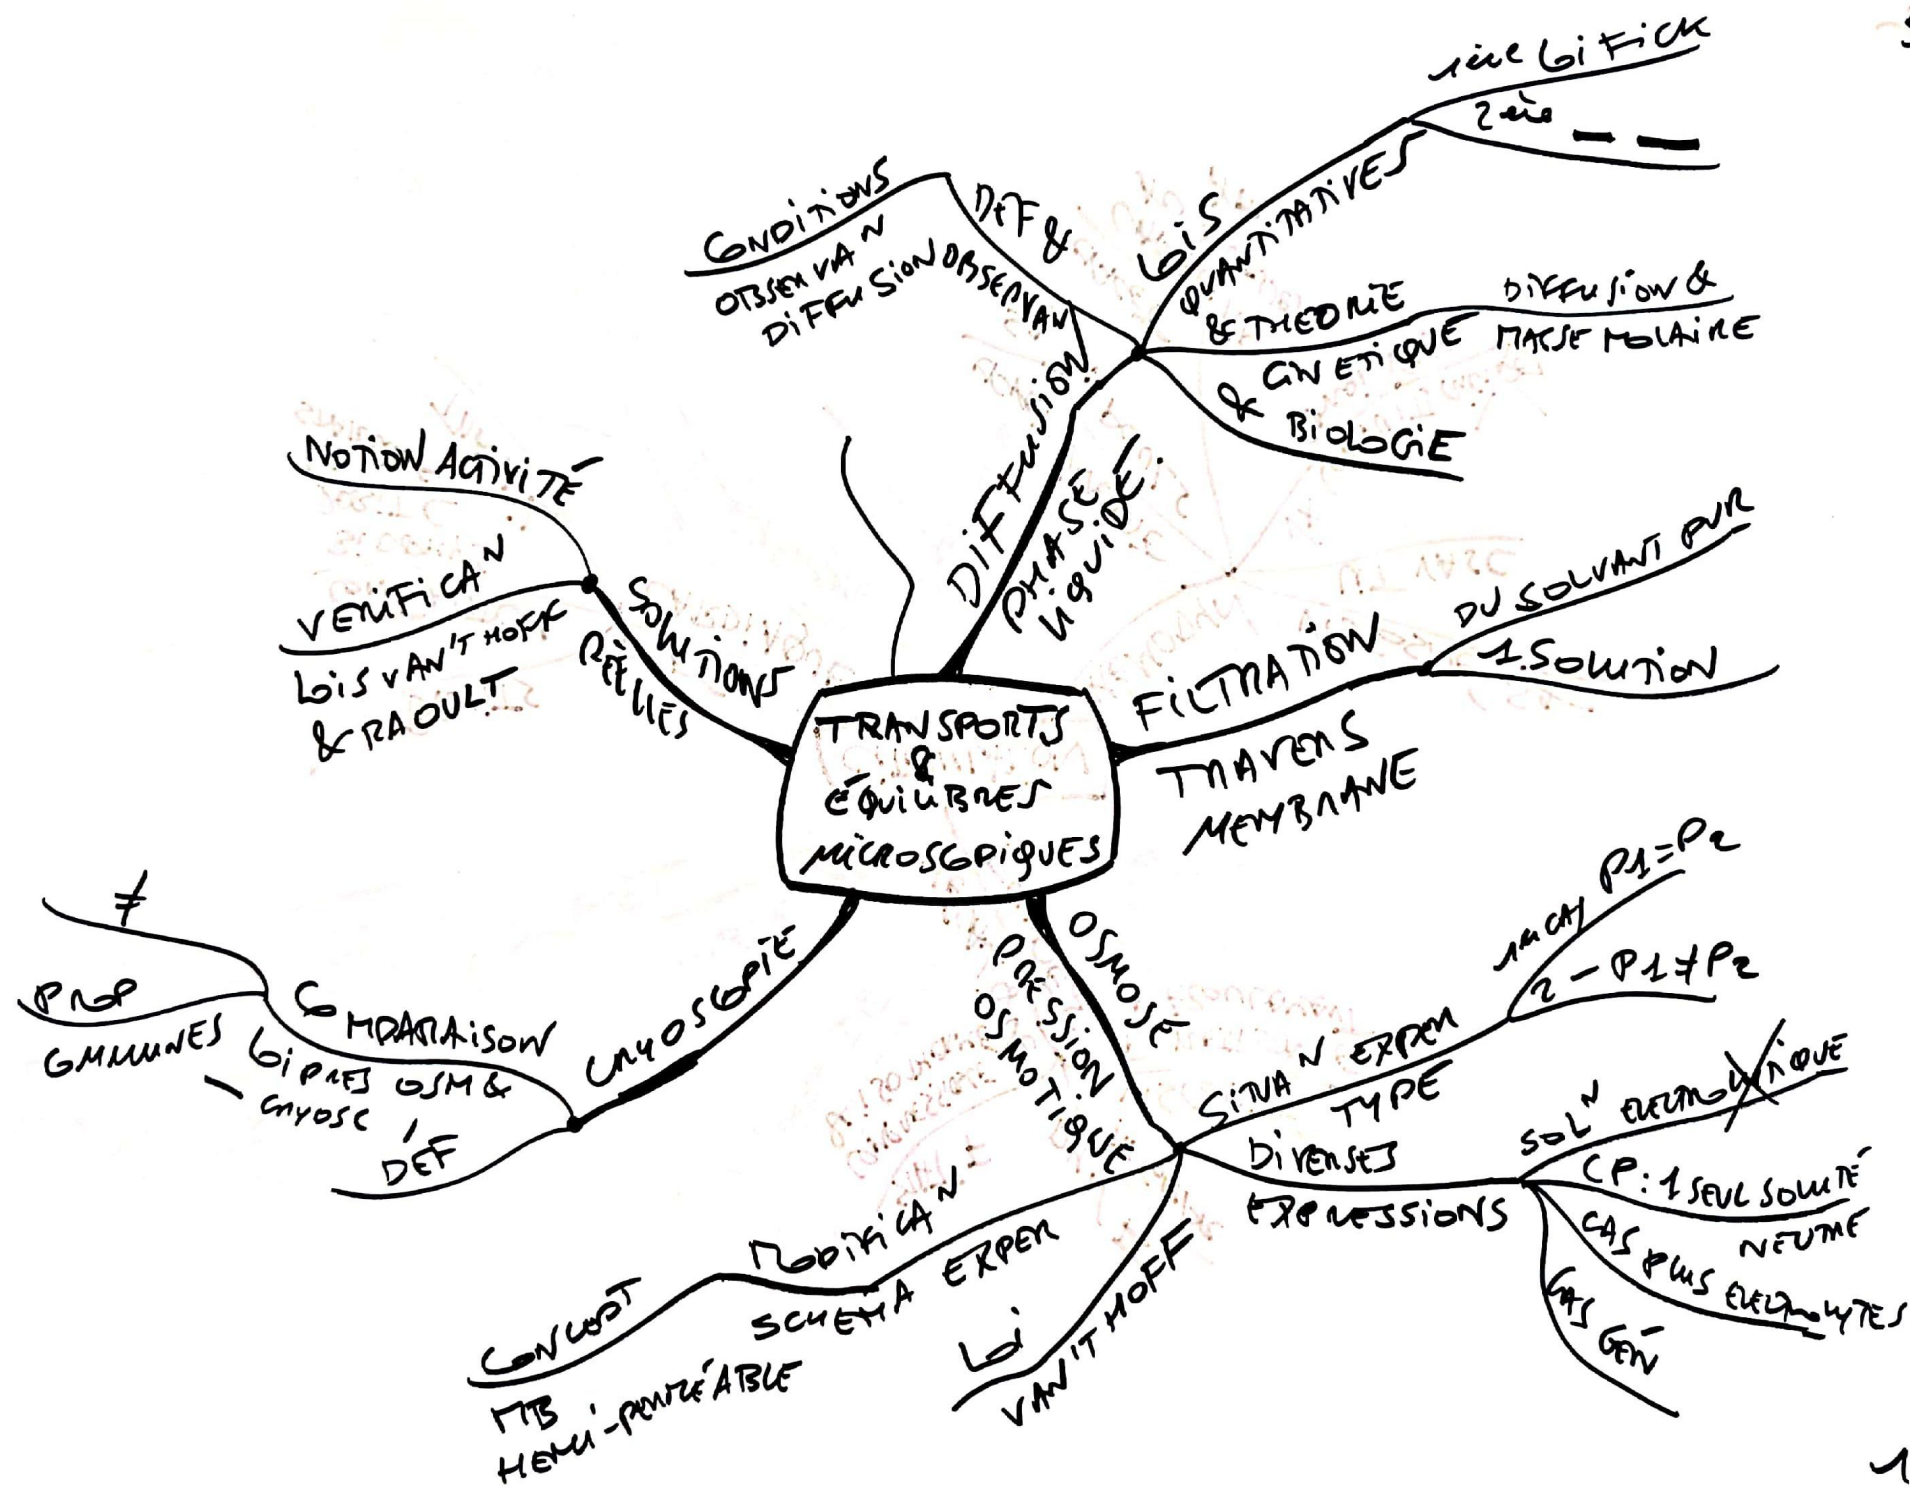 TRANSPORTS
&
ÉQUILIBRES
MICROSCOPIQUES
DIFFUSION
PHASE
LIQUIDE
DEF &
OBSERVAN
CONDITIONS
OBSERVAN
DIFFUSION
LOIS
QUANTITATIVES
1ère LOI FICK
2ère — —
& THEORIE
CINETIQUE
DIFFUSION &
MASSE MOLAIRE
& BIOLOGIE
FILTRATION
TRAVERS
MEMBRANE
DU SOLVANT PUR
1 SOLUTION
OSMOSE
PRESSION
OSMOTIQUE
SITUA N EXPER
TYPE
1er CAS P1=P2
2 — P1≠P2
DIVERSES
EXPRESSIONS
SOL N ELECTROLYTIQUE
CP: 1 SEUL SOLUTÉ
NEUTRE
CAS PLUS ELECTROLYTES
CAS GÉN
LOI
VAN'T HOFF
MODIFICA N
SCHEMA EXPER
CONCEPT
MB
HEMI-PERMÉABLE
CRYOSCOPIE
COMPARAISON
LOI PRES OSM &
CRYOSC
≠
PROP
COMMUNES
DÉF
SOLUTIONS
RÉELLES
NOTION ACTIVITÉ
VERIFICA N
LOIS VAN'T HOFF
& RAOULT